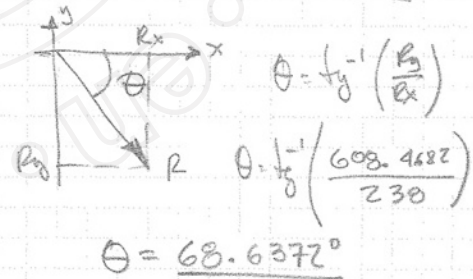 y
Rx
x
θ
Ry
R
θ = tg⁻¹ (Ry/Rx)
θ = tg⁻¹ (608.4682/238)
θ = 68.6372°